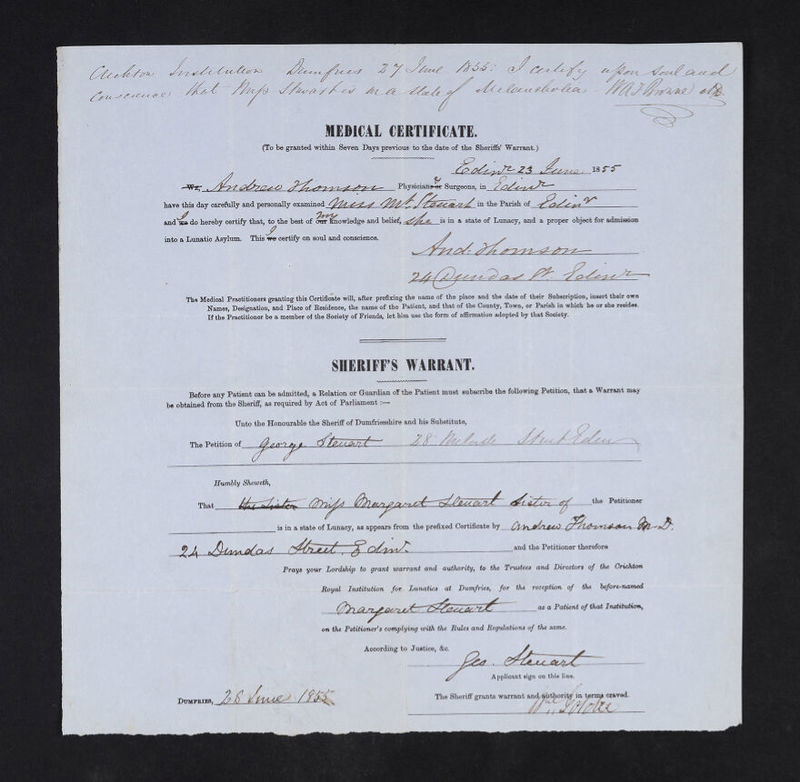 Crichton Institution Dumfries 27 June 1855: I certify upon soul and
conscience that Miss Steuart is in a state of Melancholia. WAF Browne
MEDICAL CERTIFICATE.
(To be granted within Seven Days previous to the date of the Sheriffs' Warrant.)
Edinr 23 June 1855
We, Andrew Thomson Physicians or Surgeons, in Edinr
have this day carefully and personally examined Miss Mt. Steuart in the Parish of Edinr
and I we do hereby certify that, to the best of my our knowledge and belief, she is in a state of Lunacy, and a proper object for admission
into a Lunatic Asylum. This I we certify on soul and conscience.
And. Thomson
24 Dundas St. Edinr
The Medical Practitioners granting this Certificate will, after prefixing the name of the place and the date of their Subscription, insert their own
Names, Designation, and Place of Residence, the name of the Patient, and that of the County, Town, or Parish in which he or she resides.
If the Practitioner be a member of the Society of Friends, let him use the form of affirmation adopted by that Society.
SHERIFF'S WARRANT.
Before any Patient can be admitted, a Relation or Guardian of the Patient must subscribe the following Petition, that a Warrant may
be obtained from the Sheriff, as required by Act of Parliament :—
Unto the Honourable the Sheriff of Dumfriesshire and his Substitute,
The Petition of George Steuart 28 Street Edinr
Humbly Sheweth,
That the Sister Miss Margaret Steuart Sister of the Petitioner
is in a state of Lunacy, as appears from the prefixed Certificate by Andrew Thomson M.D.
24 Dundas Street, Edinr. and the Petitioner therefore
Prays your Lordship to grant warrant and authority, to the Trustees and Directors of the Crichton
Royal Institution for Lunatics at Dumfries, for the reception of the before-named
Margaret Steuart as a Patient of that Institution,
on the Petitioner's complying with the Rules and Regulations of the same.
According to Justice, &c.
Geo. Steuart
Applicant sign on this line.
DUMFRIES, 26 June 1855 The Sheriff grants warrant and authority in terms craved.